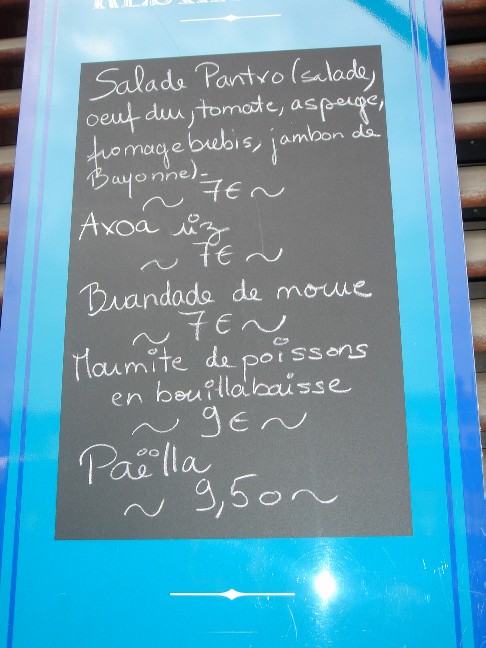 Salade Pantxo (salade,
oeuf dur, tomate, asperge,
fromage brebis, jambon de
Bayonne)-
~ 7€ ~
Axoa riz
~ 7€ ~
Brandade de morue
~ 7€ ~
Marmite de poissons
en bouillabaisse
~ 9€ ~
Paëlla
~ 9,50 ~